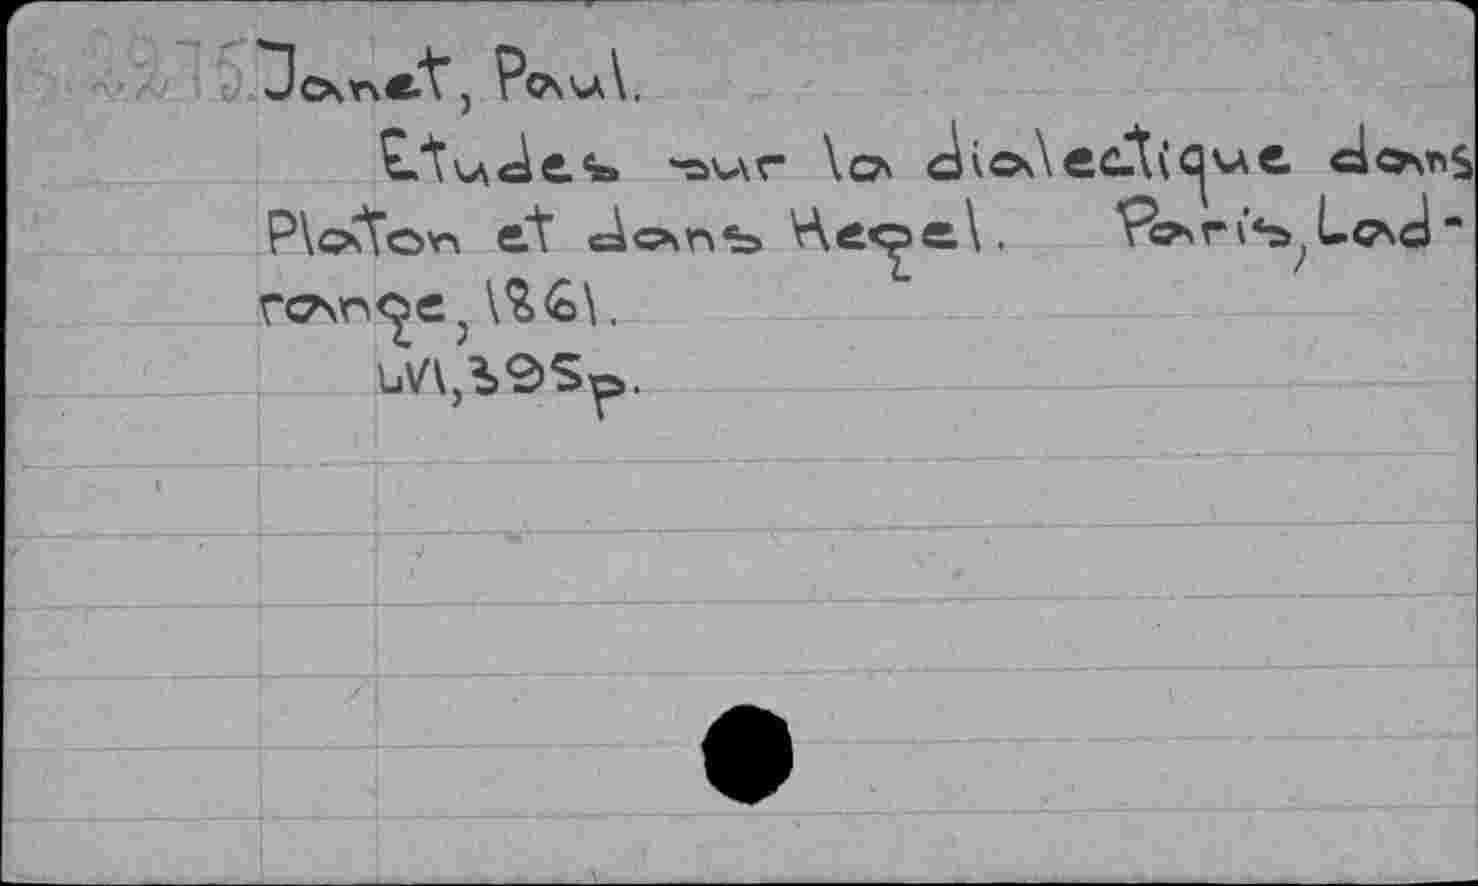 Janet, Paul.
Etudes sur la dialectique dans
Platon et dans Hegel. Paris, Lad-
range, 1861.
LVI, 395p.